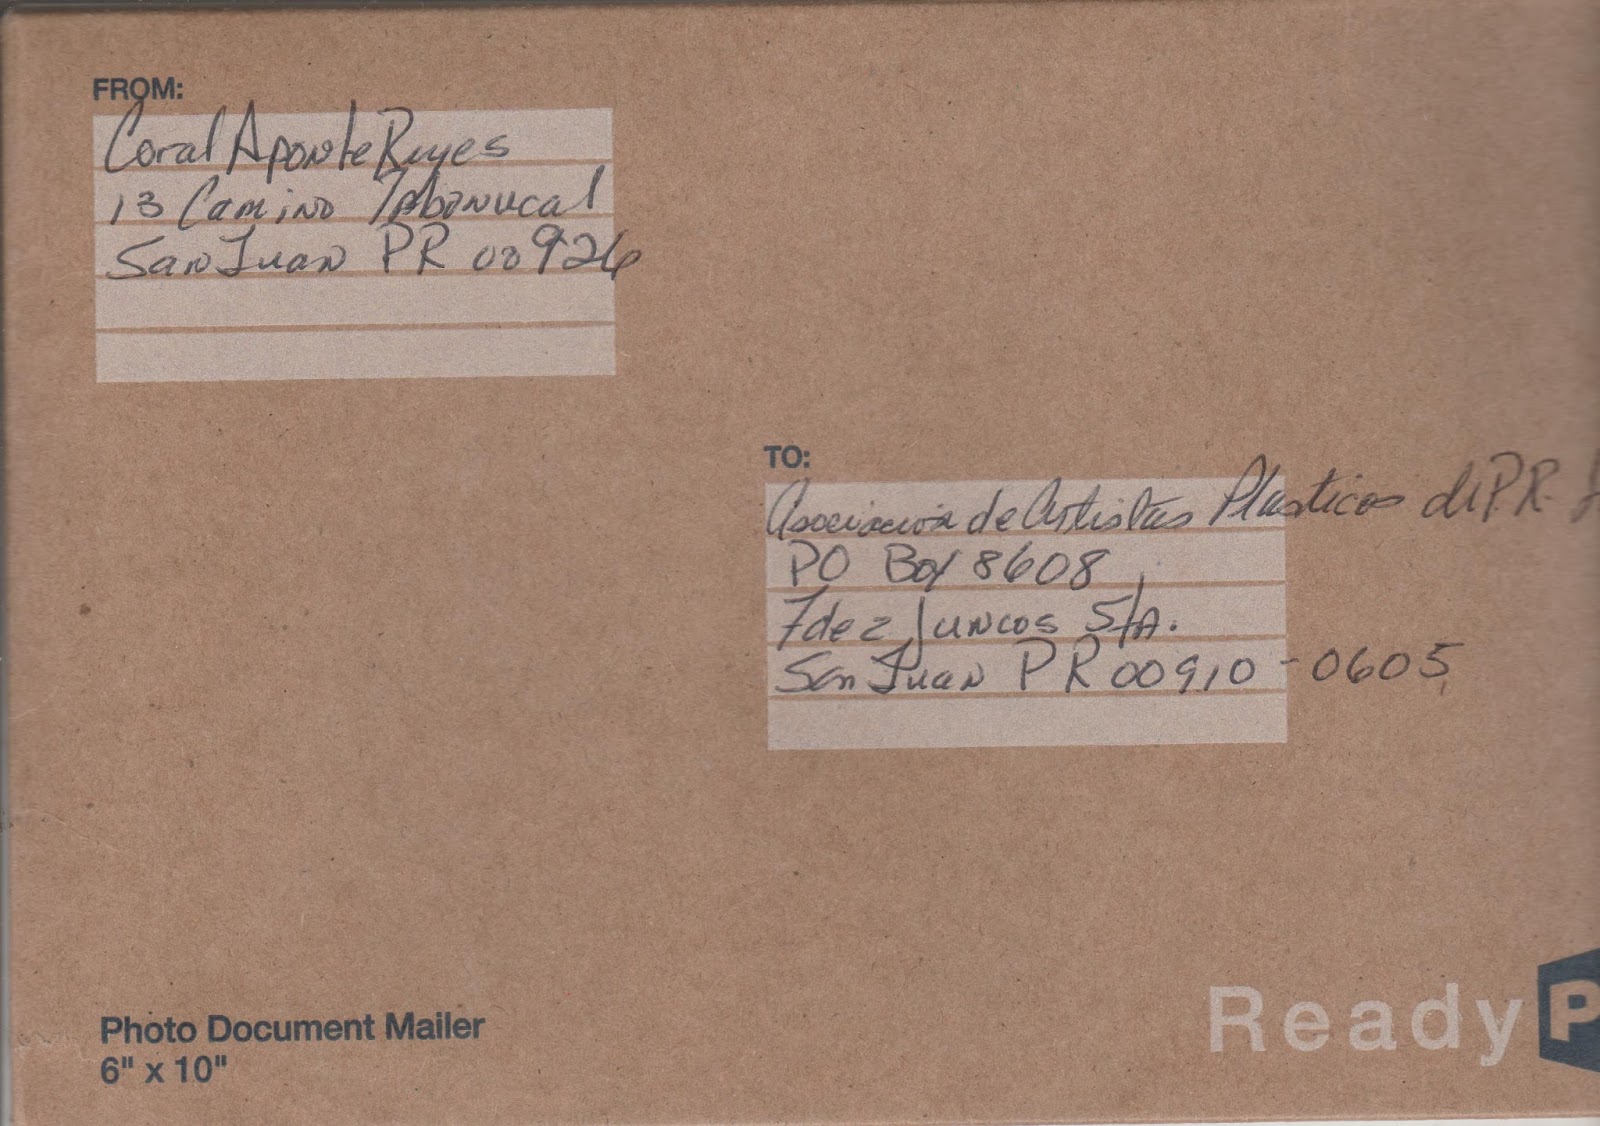 FROM:
Coral Aponte Reyes
13 Camino Tabonucal
San Juan PR 00926
TO:
Asociación de Artistas Plasticos de P.R.
PO Box 8608
Fdez Juncos Sta.
San Juan PR 00910-0605
Photo Document Mailer
6" x 10"
ReadyP